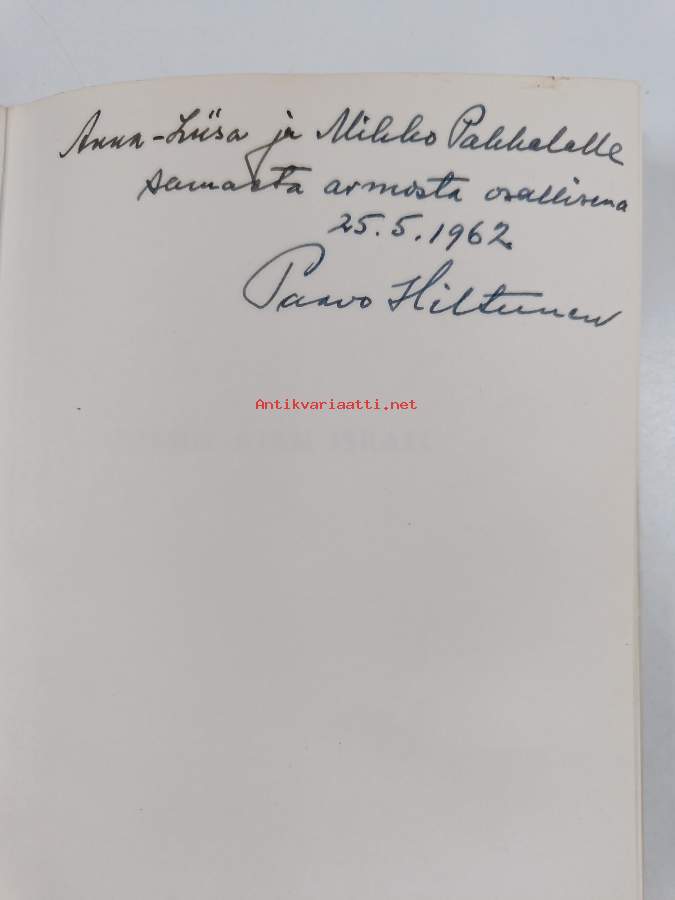 Anna-Liisa ja Mikko Pakkalalle
samasta armosta osallisena
25.5.1962
Paavo Hiltunen
Antikvariaatti.net